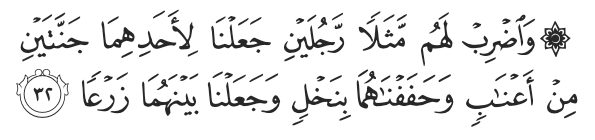 ۞ وَٱضۡرِبۡ لَهُم مَّثَلٗا رَّجُلَيۡنِ جَعَلۡنَا لِأَحَدِهِمَا جَنَّتَيۡنِ
مِنۡ أَعۡنَٰبٖ وَحَفَفۡنَٰهُمَا بِنَخۡلٖ وَجَعَلۡنَا بَيۡنَهُمَا زَرۡعٗا ٣٢